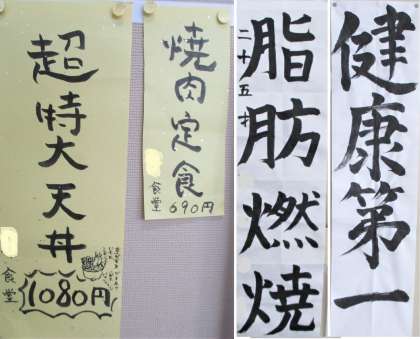 超特大天丼
食堂
1080円
焼肉定食
食堂
690円
二十五才
脂肪燃焼
健康第一